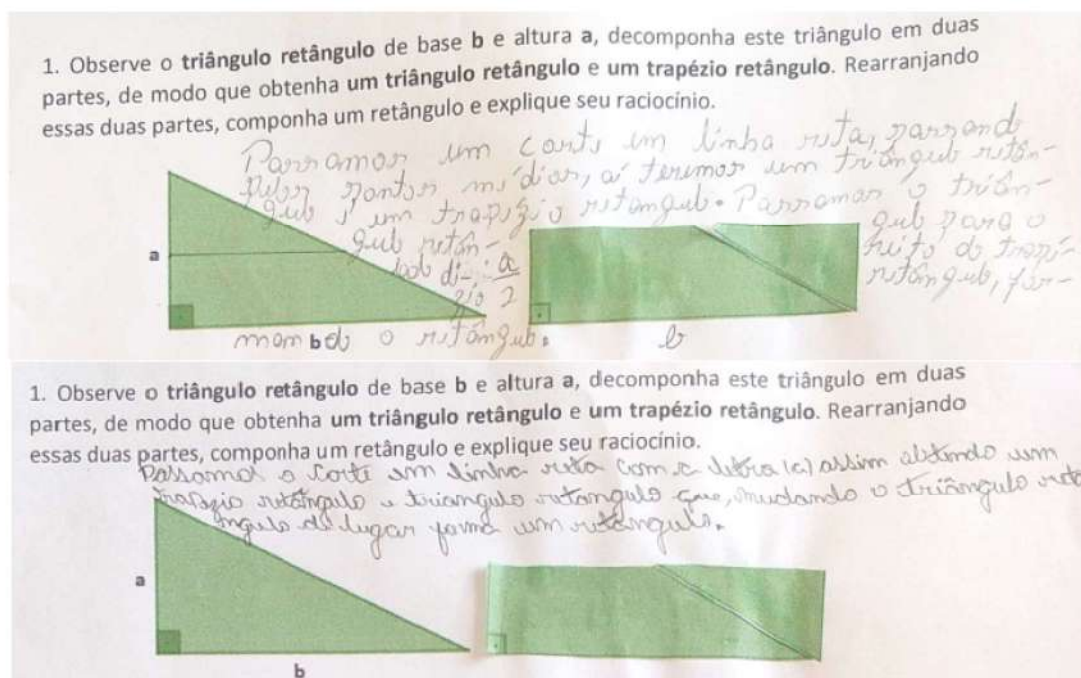 1. Observe o triângulo retângulo de base b e altura a, decomponha este triângulo em duas
partes, de modo que obtenha um triângulo retângulo e um trapézio retângulo. Rearranjando
essas duas partes, componha um retângulo e explique seu raciocínio.
Passamos um corte em linha reta, passand
pelos pontos médios, aí teremos um triângulo retân-
gulo e um trapézio retangulo. Passamos o triân-
gulo retân-
gulo para o
lado di-
reito do trapé-
zio
retângulo, for-
a
a
2
mambdo o retângulo.
b
1. Observe o triângulo retângulo de base b e altura a, decomponha este triângulo em duas
partes, de modo que obtenha um triângulo retângulo e um trapézio retângulo. Rearranjando
essas duas partes, componha um retângulo e explique seu raciocínio.
Passamos o corte em linha reta com a letra (c) assim obtendo um
trapezio retângulo e triangulo retangulo que, mudando o triângulo ret
ângulo de lugar forma um retângulo.
a
b